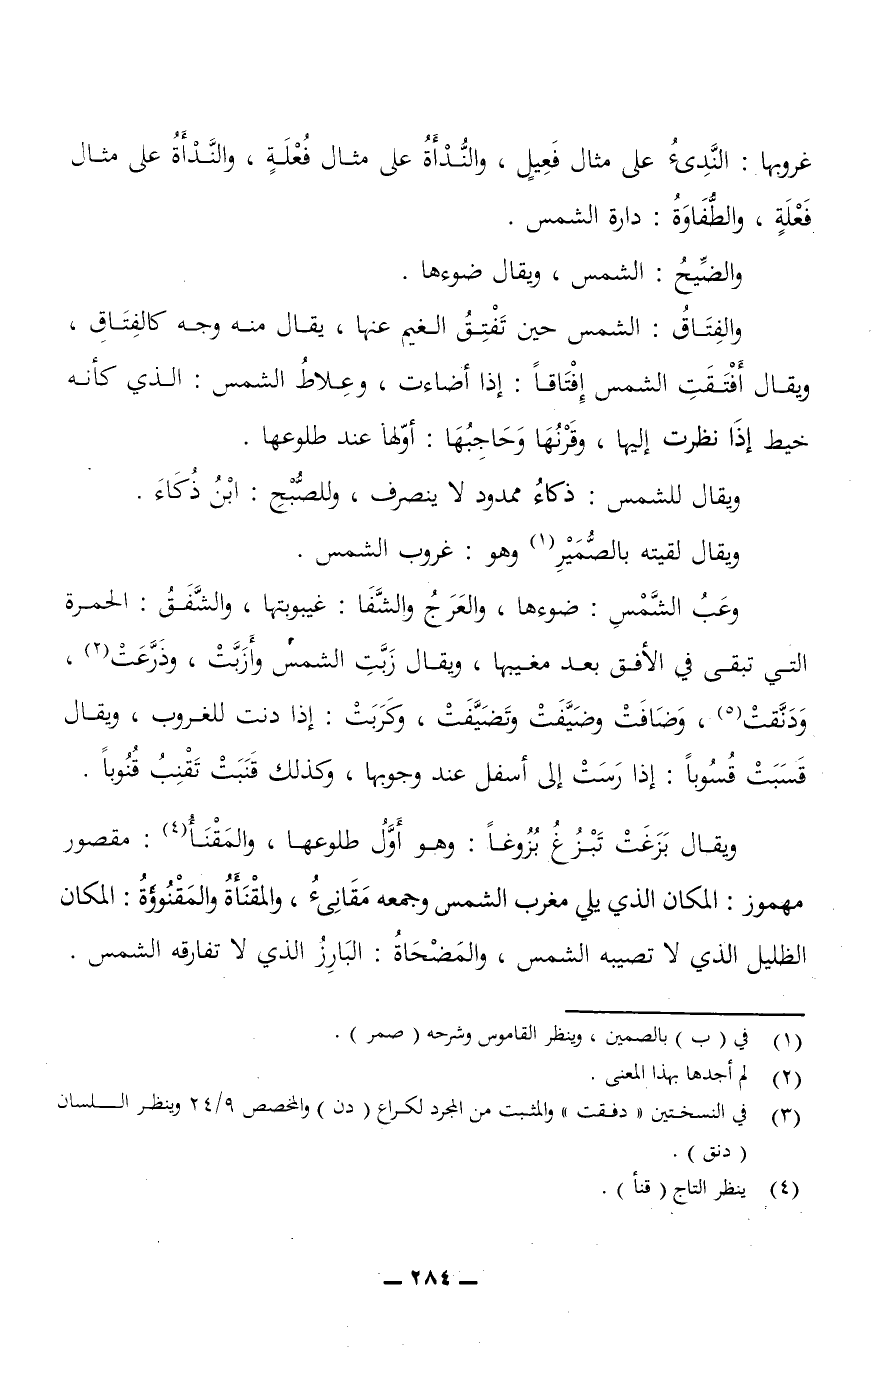 غروبها : النَّدِىءُ على مثال فَعِيلٍ ، والنُّدْأَةُ على مثال فُعْلَةٍ ، والنَّدْأَةُ على مثال
فَعْلَةٍ ، والطُّفَاوَةُ : دارة الشمس .
والضِّيحُ : الشمس ، ويقال ضوءها .
والفِتَاقُ : الشمس حين تَفْتِقُ الغيم عنها ، يقال منه وجه كالفِتَاقِ ،
ويقال أَفْتَقَتِ الشمس إفْتَاقاً : إذا أضاءت ، وعِلاطُ الشمس : الذي كأنه
خيط إذَا نظرت إليها ، وقَرْنُهَا وَحَاجِبُهَا : أوّلها عند طلوعها .
ويقال للشمس : ذكاءُ ممدود لا ينصرف ، وللصُّبْحِ : ابْنُ ذُكَاءَ .
ويقال لقيته بالصُّمَيْرِ(١) وهو : غروب الشمس .
وعَبُ الشَّمْسِ : ضوءها ، والعَرَجُ والشَّفَا : غيبوبتها ، والشَّفَقُ : الحمرة
التي تبقى في الأفق بعد مغيبها ، ويقال زَبَّتِ الشمسُ وأَزَبَّتْ ، وذَرَّعَتْ(٢) ،
وَدَنَّقتْ(٥) ، وَضَافَتْ وضَيَّفَتْ وتَضَيَّفَتْ ، وكَرَبَتْ : إذا دنت للغروب ، ويقال
قَسَبَتْ قُسُوباً : إذا رَسَتْ إلى أسفل عند وجوبها ، وكذلك قَنَبَتْ تَقْنِبُ قُنُوباً .
ويقال بَزَغَتْ تَبْزُغُ بُزُوغاً : وهو أَوَّلُ طلوعها ، والمَقْنَأُ(٤) : مقصور
مهموز : المكان الذي يلي مغرب الشمس وجمعه مَقَانِىءُ ، والمَقْنَأَةُ والمَقْنُوؤَةُ : المكان
الظليل الذي لا تصيبه الشمس ، والمَضْحَاةُ : البَارِزُ الذي لا تفارقه الشمس .
(١) في ( ب ) بالصمين ، وينظر القاموس وشرحه ( صمر ) .
(٢) لم أجدها بهذا المعنى .
(٣) في النسختين « دفقت » والمثبت من المجرد لكراع ( دن ) والمخصص ٢٤/٩ وينظر اللسان
( دنق ) .
(٤) ينظر التاج ( قنأ ) .
— ٢٨٤ —